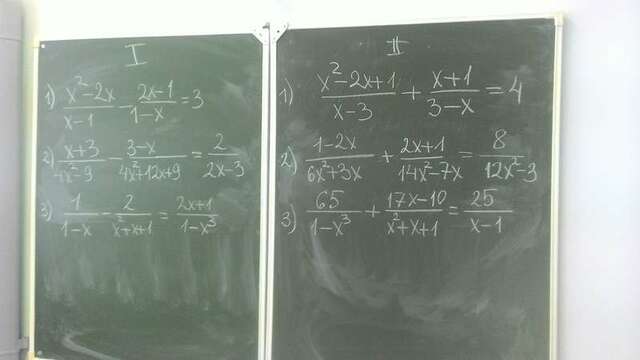 I
1) (x²-2x)/(x-1) - (2x-1)/(1-x) = 3
2) (x+3)/(4x²-9) - (3-x)/(4x²+12x+9) = 2/(2x-3)
3) 1/(1-x) - 2/(x²+x+1) = (2x+1)/(1-x³)
II
1) (x²-2x+1)/(x-3) + (x+1)/(3-x) = 4
2) (1-2x)/(6x²+3x) + (2x+1)/(14x²-7x) = 8/(12x²-3)
3) 65/(1-x³) + (17x-10)/(x²+x+1) = 25/(x-1)